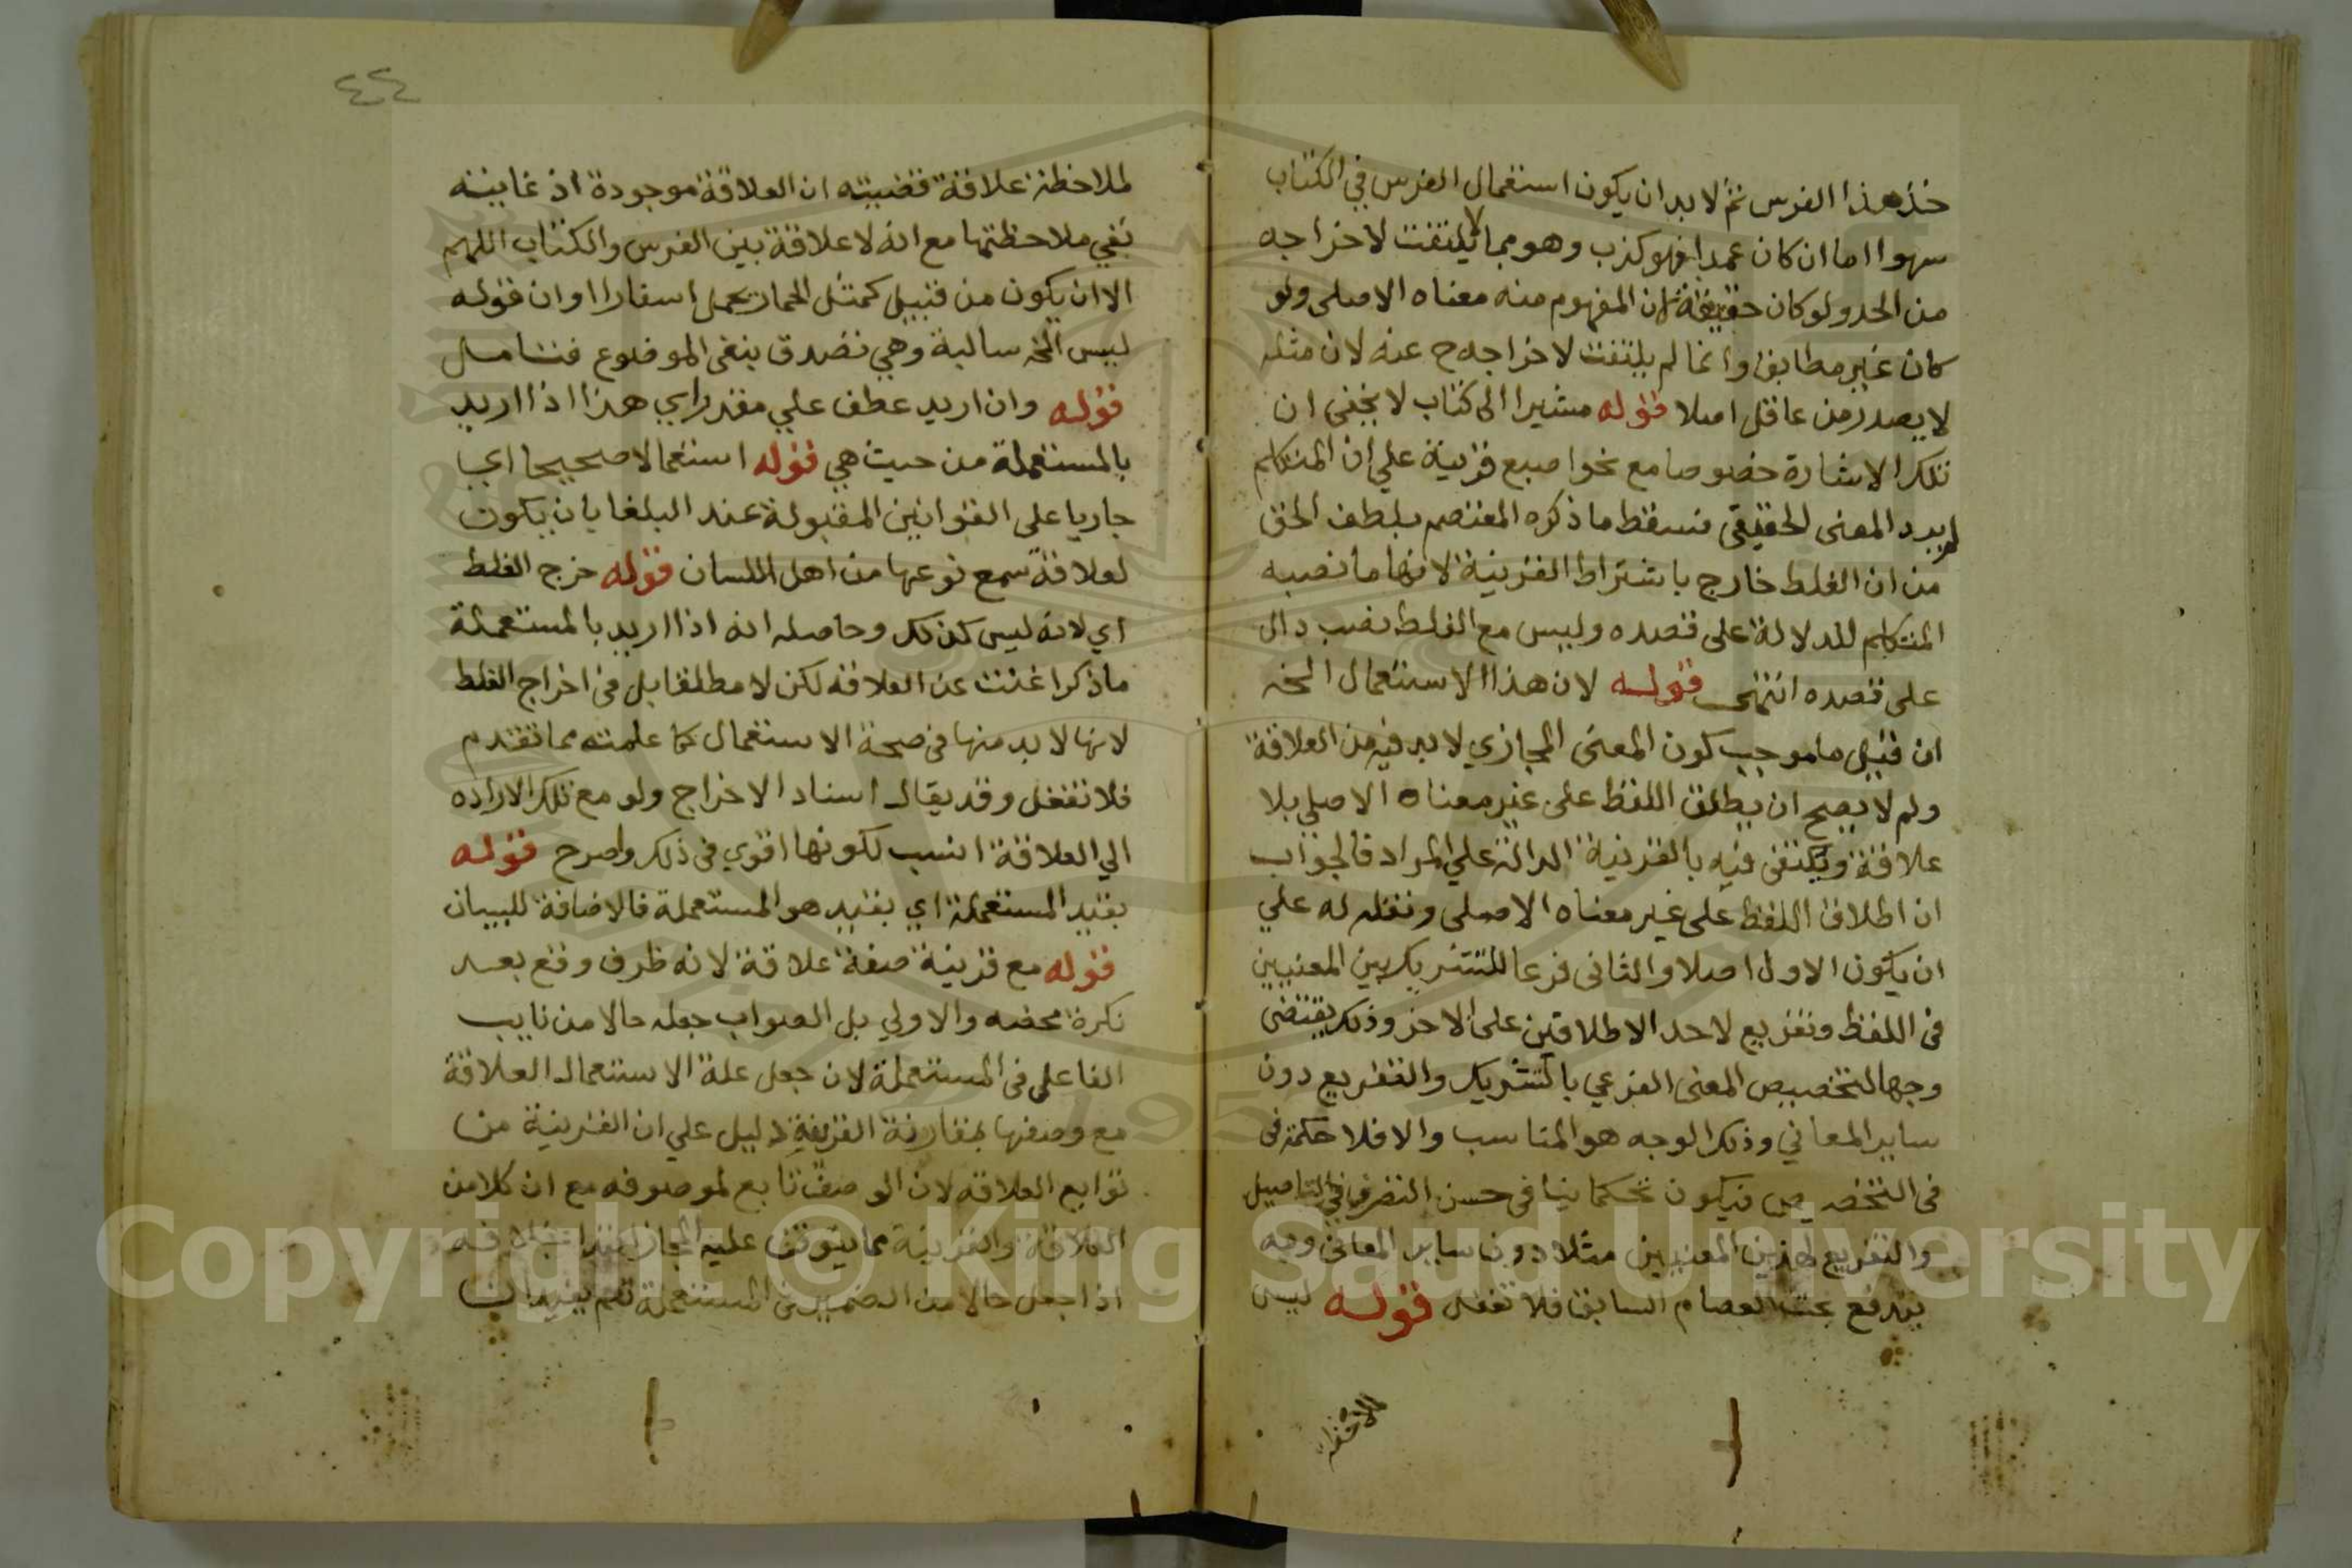 خذ هذا الفرس ثم لا بد ان يكون استعمال الفرس في الكتاب
سهوا اما ان كان عمدا فهو كذب وهو مما لا يلتفت لاخراجه
من الحد ولو كان حقيقة لان المفهوم منه معناه الاصلى ولو
كان غير مطابق وانما لم يلتفت لاخراجه ح عنه لان مثله
لا يصدر من عاقل اصلا قوله مشيرا الى كتاب لا يخفى ان
تلك الاشارة خصوصا مع نحو اصبع قرينة علي ان المتكلم
لم يرد المعنى الحقيقى فسقط ما ذكره المعتصم بلطف الحق
من ان الغلط خارج باشتراط القرينة لانها ما نصبه
المتكلم للدلالة على قصده وليس مع الغلط نصب دال
على قصده انتهى قوله لان هذا الاستعمال الخ
ان قيل ما موجب كون المعنى المجازي لا بد فيه من العلاقة
ولم لا يصح ان يطلق اللفظ على غير معناه الاصلي بلا
علاقة ويكتفى فيه بالقرينة الدالة علي المراد فالجواب
ان اطلاق اللفظ على غير معناه الاصلى ونقله له علي
ان يكون الاول اصلا والثانى فرعا للتشريك بين المعنيين
فى اللفظ وتفريع لاحد الاطلاقين على الاخر وذلك يقتضى
وجها لتخصيص المعنى الفرعي بالتشريك والتفريع دون
ساير المعاني وذلك الوجه هو المناسب والا فلا حكمة فى
فى التخصيص فيكون تحكما ينافى حسن التصرف في التاصيل
والتفريع لهذين المعنيين مثلا دون ساير المعانى وبه
يندفع بحث العصام السابق فلا تغفل قوله ليس
لملاحظة
٤٤
لملاحظة علاقة قضيته ان العلاقة موجودة اذ غايته
نفي ملاحظتها مع انه لا علاقة بين الفرس والكتاب اللهم
الا ان يكون من قبيل كمثل الحمار يحمل اسفارا او ان قوله
ليس الخ سالبة وهي تصدق بنفى الموضوع فتامل
قوله وان اريد عطف علي مقدر اي هذا اذا اريد
بالمستعملة من حيث هي قوله استعمالا صحيحا اي
جاريا على القوانين المقبولة عند البلغا بان يكون
لعلاقة سمع نوعها من اهل اللسان قوله خرج الغلط
اي لانه ليس كذلك وحاصله انه اذا اريد بالمستعملة
ما ذكر اغنت عن العلاقة لكن لا مطلقا بل فى اخراج الغلط
لانها لا بد منها فى صحة الاستعمال كما علمته مما تقدم
فلا تغفل وقد يقال اسناد الاخراج ولو مع تلك الاراده
الي العلاقة انسب لكونها اقوي فى ذلك واصرح قوله
بقيد المستعملة اي بقيد هو المستعملة فالاضافة للبيان
قوله مع قرينة صفة علاقة لانه ظرف وقع بعد
نكرة محضه والاولي بل الصواب جعله حالا من نايب
الفاعل فى المستعملة لان جعل علة الاستعمال العلاقة
مع وصفها بمقارنة القرينة دليل علي ان القرينة من
توابع العلاقه لان الوصف تابع لموصوفه مع ان كلا من
العلاقة والقرينة مما يتوقف عليه المجاز بخلافه
اذا جعل حالا من الضمير فى المستعملة نعم يفيد ان